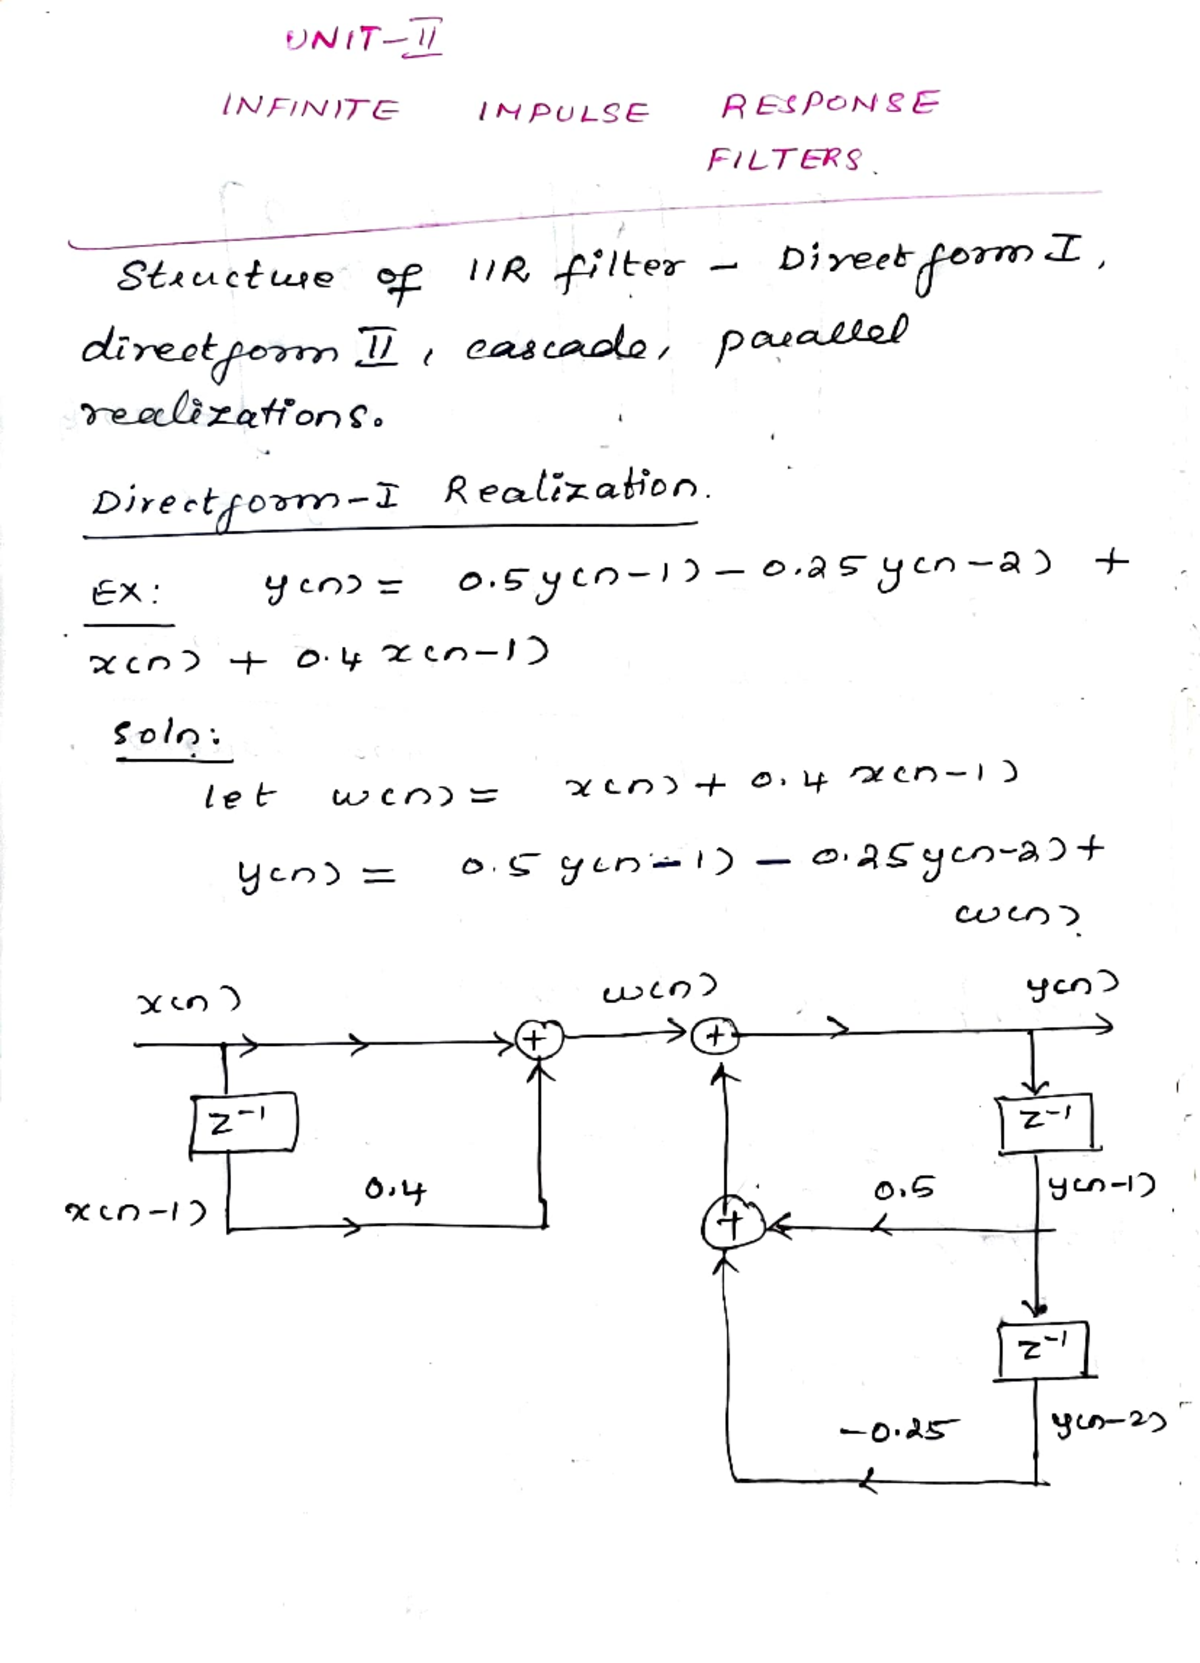 UNIT-II
INFINITE IMPULSE RESPONSE
FILTERS.
Structure of IIR filter - Direct form I,
direct form II, cascade, parallel
realizations.
Direct form-I Realization.
EX: y(n) = 0.5y(n-1) - 0.25y(n-2) +
x(n) + 0.4x(n-1)
Soln:
let w(n) = x(n) + 0.4 x(n-1)
y(n) = 0.5 y(n-1) - 0.25y(n-2) +
w(n)
x(n) w(n) y(n)
+ +
z⁻¹ z⁻¹
x(n-1) 0.4 0.5 y(n-1)
+
z⁻¹
-0.25 y(n-2)